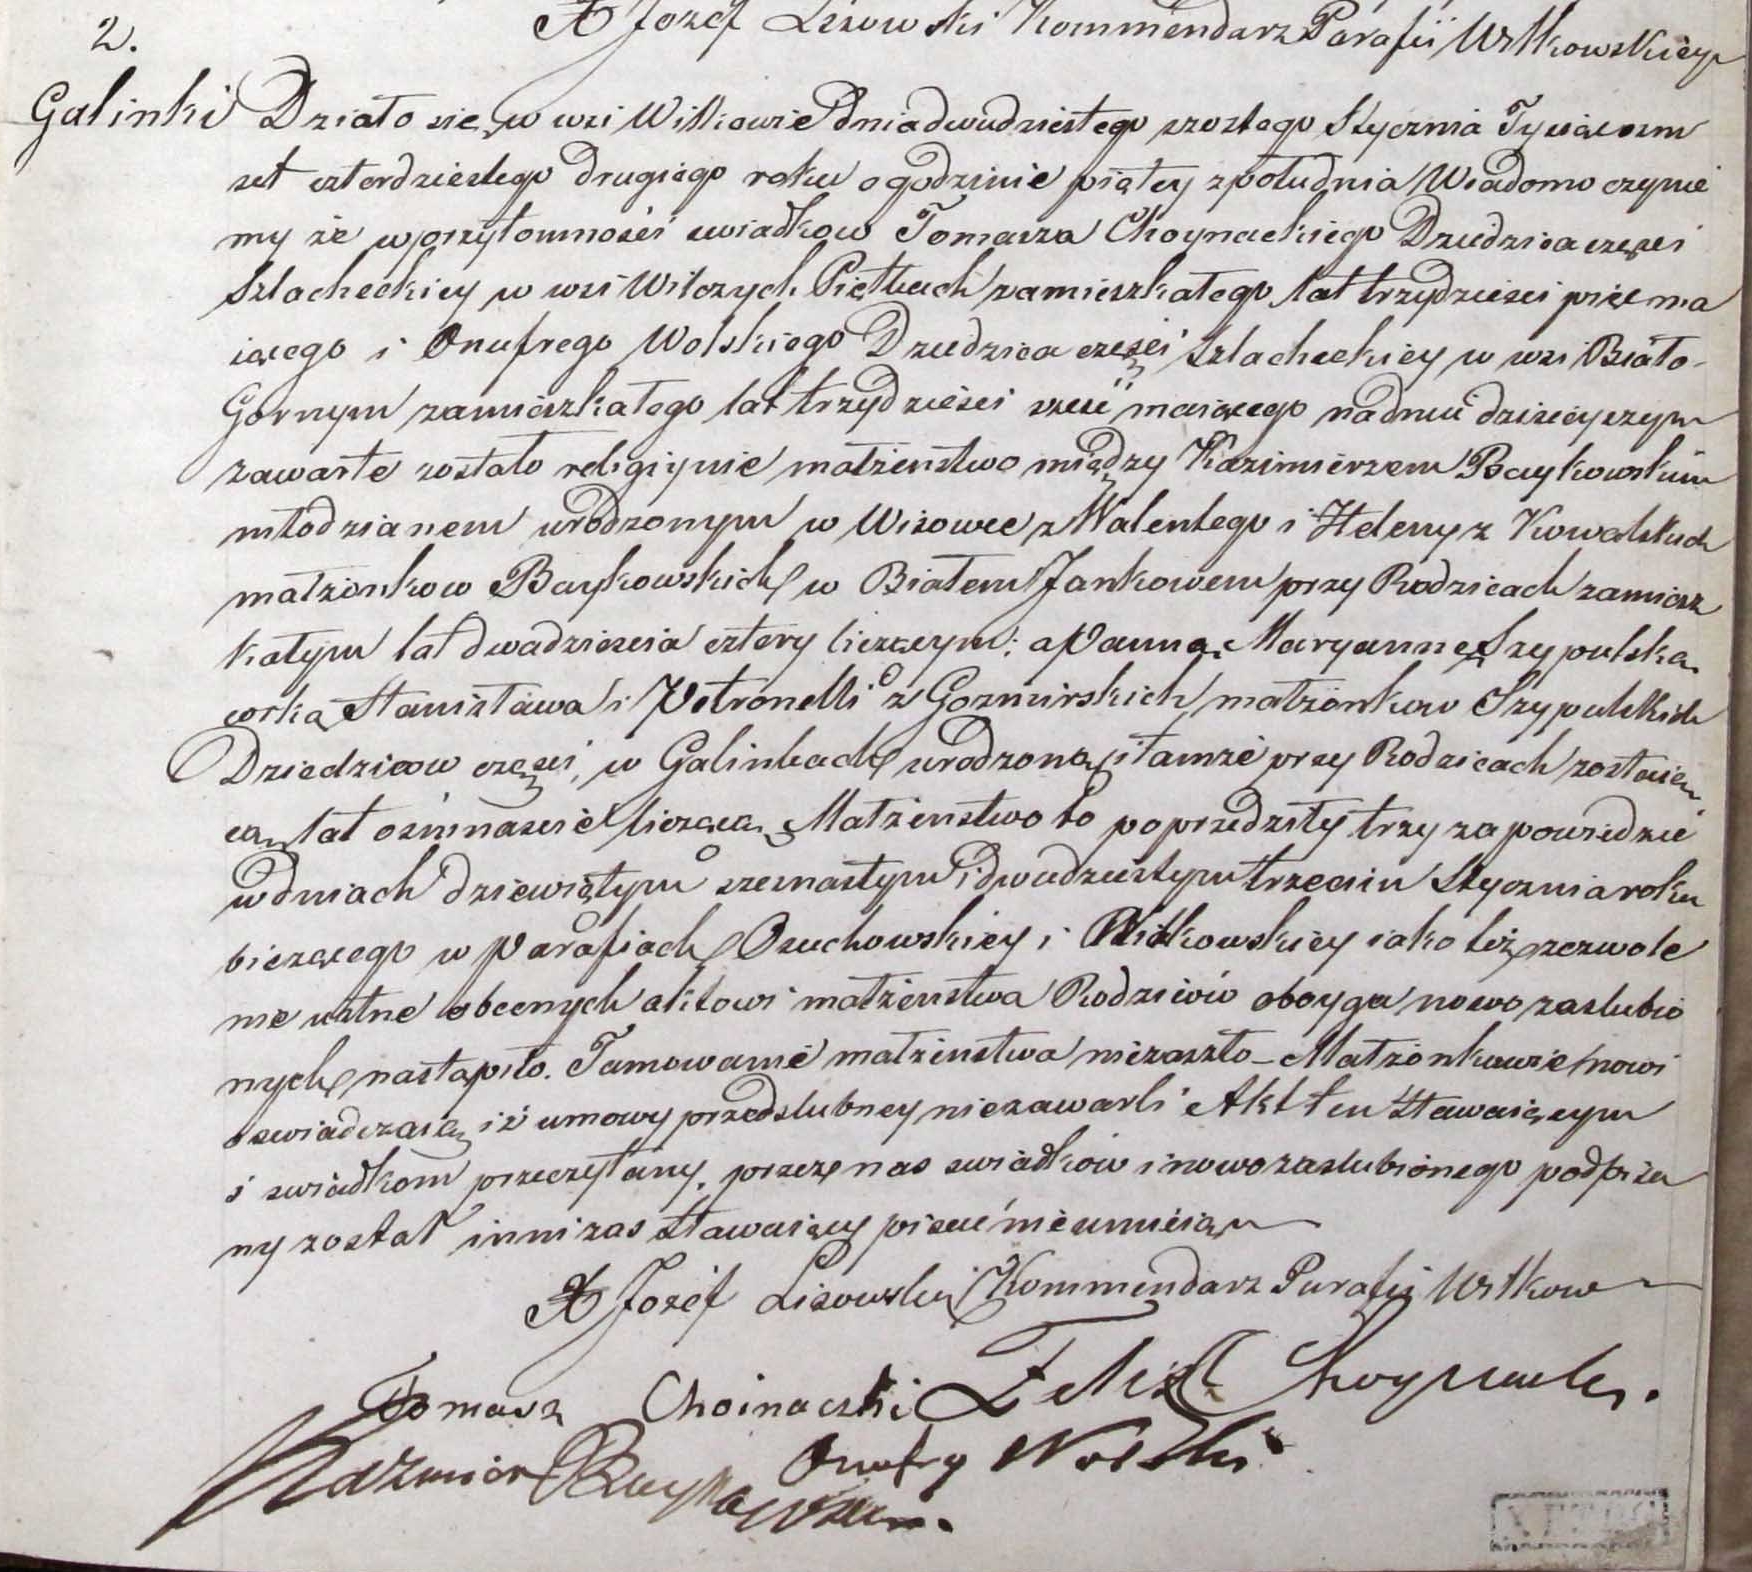 X Jozef Lisowski Kommendarz Parafii Witkowskiey
2.
Galinki Działo się w wsi Witkowie dnia dwudziestego szostego Stycznia Tysiąc osm
set czterdziestego drugiego roku o godzinie piątey z południa Wiadomo czynie
my że w przytomności swiadkow Tomasza Choynackiego Dziedzica częsci
Szlacheckiey w wsi Wilczych Piętkach zamieszkałego lat trzydziesci pięc ma
iącego i Onufrego Wolskiego Dziedzica częsci Szlacheckiey w wsi Biało-
Gornym zamieszkałego lat trzydziesci szesć maiącego na dniu dzisieyszym
zawarte zostało religiynie małżenstwo między Kazimierzem Baykowskim
młodzianem urodzonym w Wisowce z Walentego i Heleny z Kowalskich
małżonkow Baykowskich w Białem Jankowem przy Rodzicach zamiesz
kałym lat dwadziescia cztery liczącym; a Panną Maryanną Szypulską
corką Stanisława i Petronelli z Gozmirskich małżonkow Szypulskich
Dziedzicow częsci w Galinkach urodzoną i tamże przy Rodzicach zostaią
cą lat osimnascie liczącą Małżenstwo to poprzedziły trzy zapowiedzie
w dniach dziewiątym szesnastym i dwudziestym trzecim Stycznia roku
bieżącego w Parafiach Osuchowskiey i Witkowskiey iako też zezwole
nie ustne obecnych aktowi małżenstwa Rodziców oboyga nowo zaslubio
nych nastąpiło. Tamowanie małżenstwa niezaszło – Małżonkowie nowi
oswiadczaią iż umowy przedslubney niezawarli Akt ten stawaiącym
i swiadkom przeczytany, przez nas swiadków i nowozaslubionego podpisa
ny został inni zas stawaiący pisać nieumieią
X Jozef Lisowski Kommendarz Parafii Witkow
Tomasz Choinaczki Felix Choynacki.
Kazmier Baykowski. Onufry Wolski